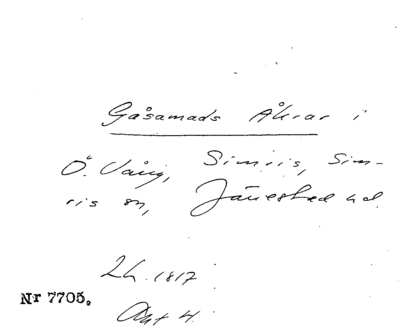 Gåsamads Åkrar i
Ö. Vång, Simris, Sim-
ris sn, Järrestad hd.
Lh. 1817
Nr 7705.
Akt 4.